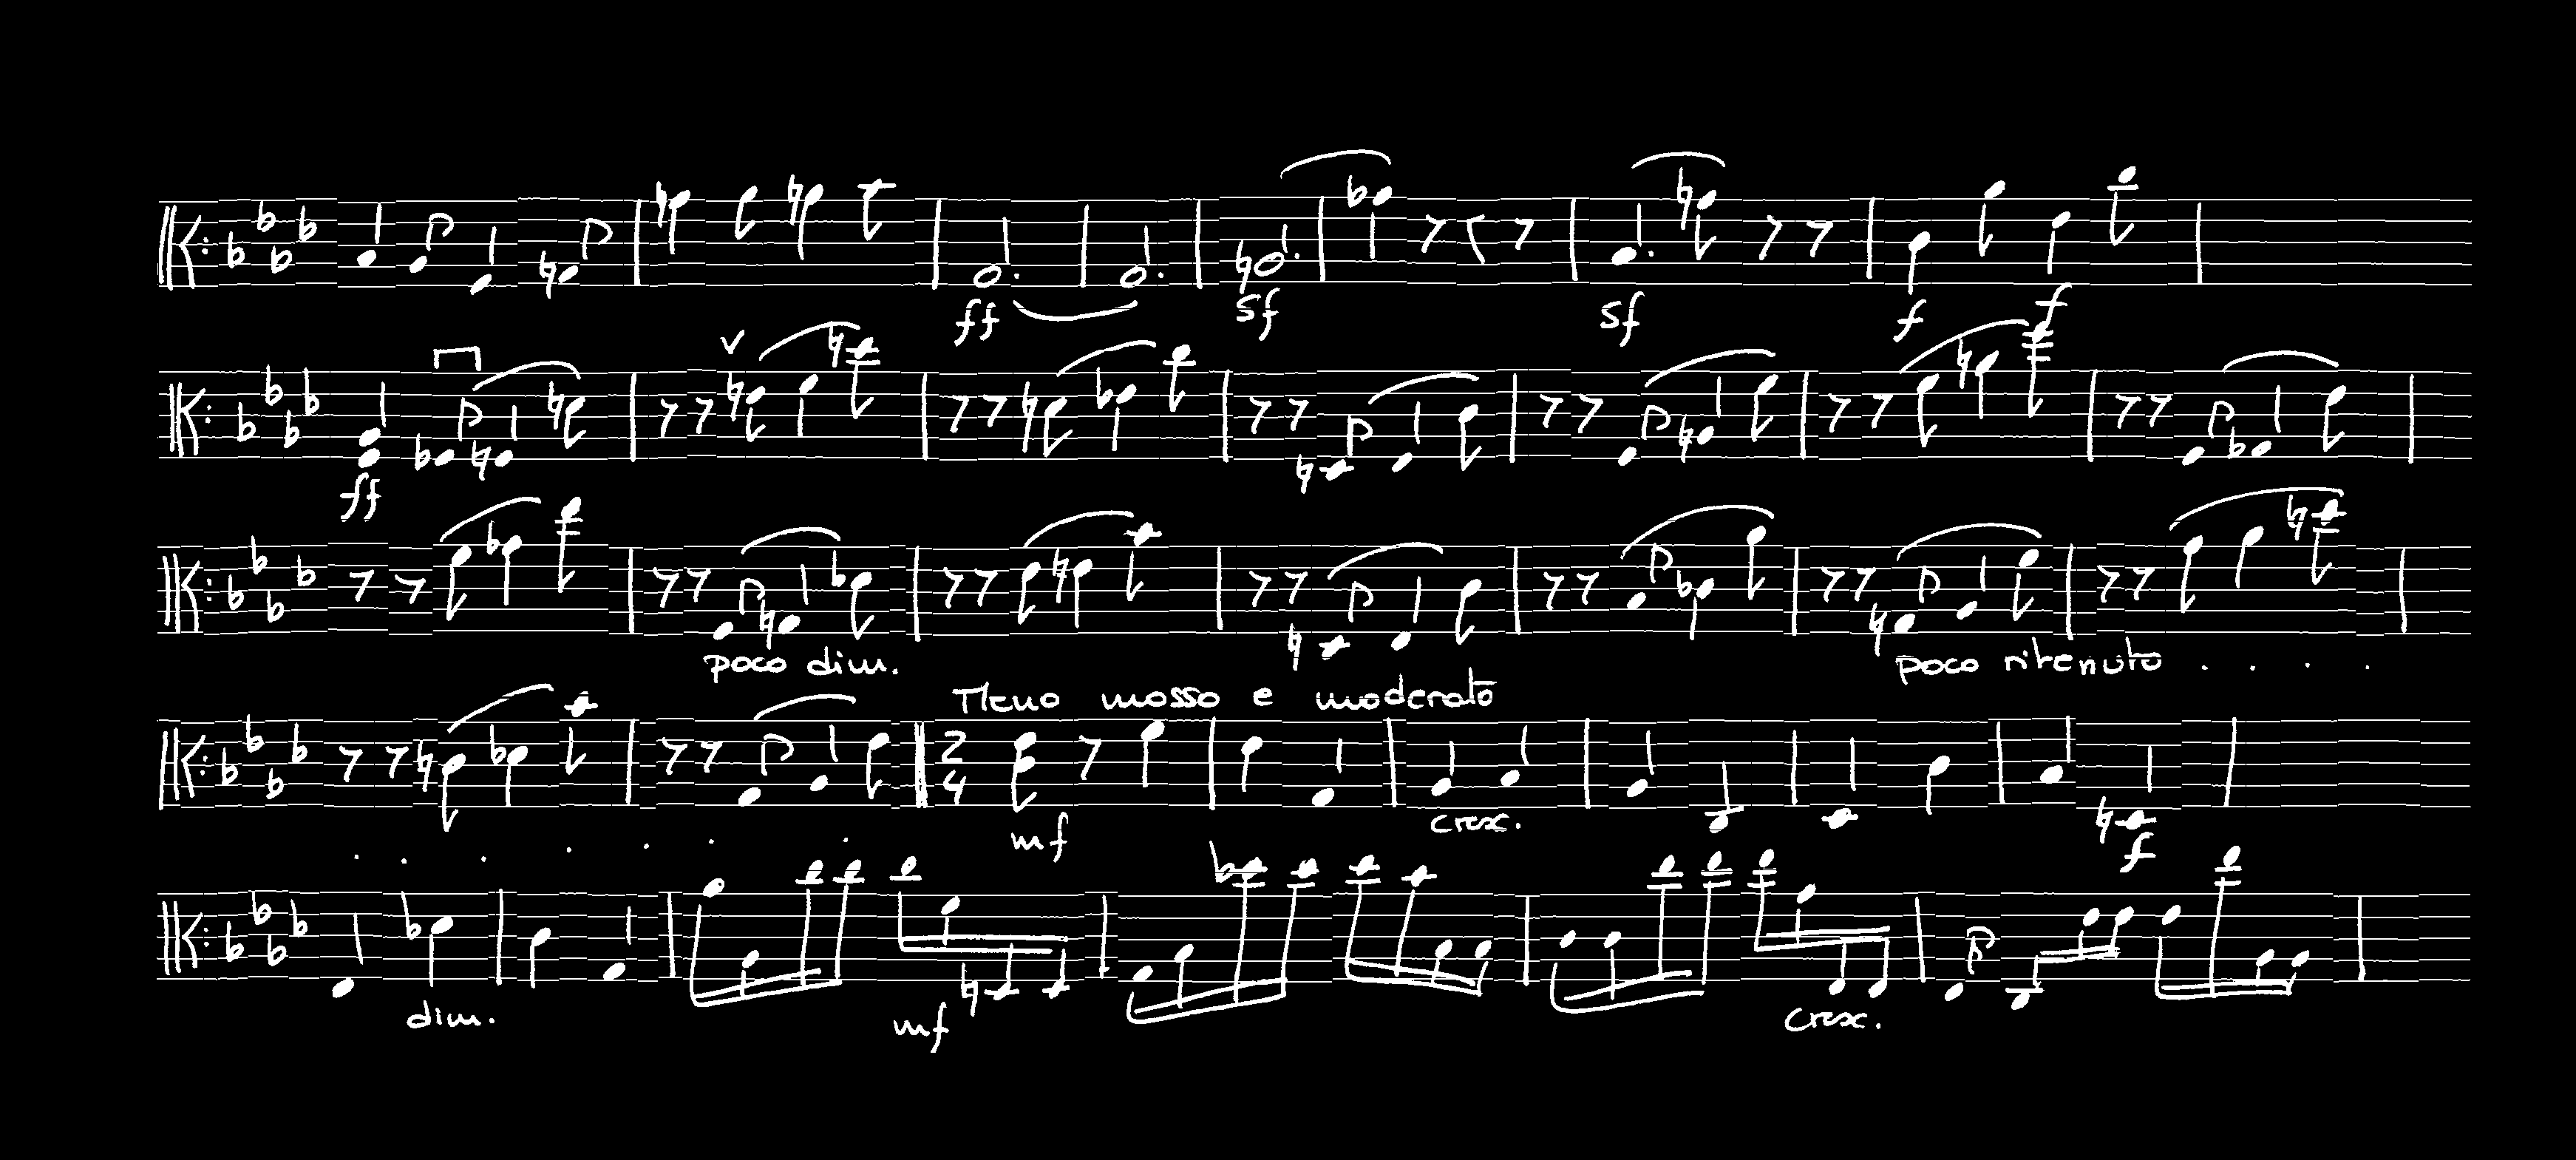 ff sf sf f f
ff
poco dim. poco ritenuto . . . .
Meno mosso e moderato
2 4 mf cresc. f
. . . . . . .
dim. mf cresc.